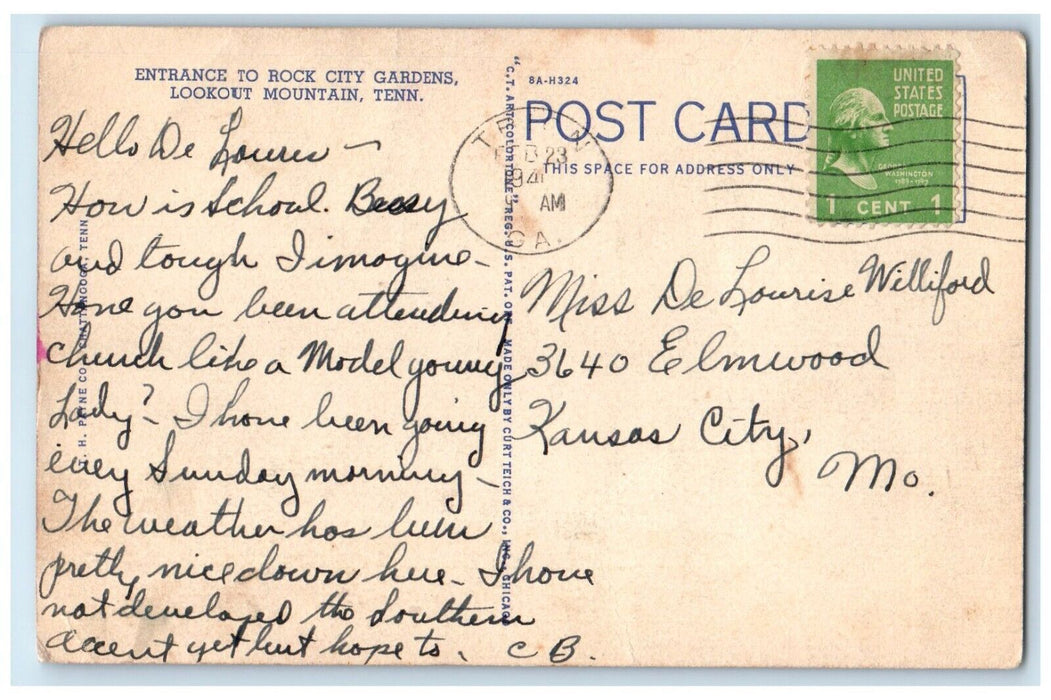 ENTRANCE TO ROCK CITY GARDENS,
LOOKOUT MOUNTAIN, TENN.
Hello De Lourise —
How is School. Beesy
and tough I imagine-
Have you been attending
church like a Model young
Lady? - I have been going
every Sunday morning -
The weather has been
pretty nice down here - I have
not developed the Southern
accent yet but hope to. C B.
H. PAYNE CO., CHATTANOOGA, TENN.
"C.T. ART-COLORTONE" REG. U.S. PAT. OFF. MADE ONLY BY CURT TEICH & CO., INC., CHICAGO
8A-H324
POST CARD
THIS SPACE FOR ADDRESS ONLY
FEB 23
AM
GA.
UNITED
STATES
POSTAGE
GEORGE
WASHINGTON
1789-1797
1 CENT 1
Miss De Lourise Williford
3640 Elmwood
Kansas City,
Mo.